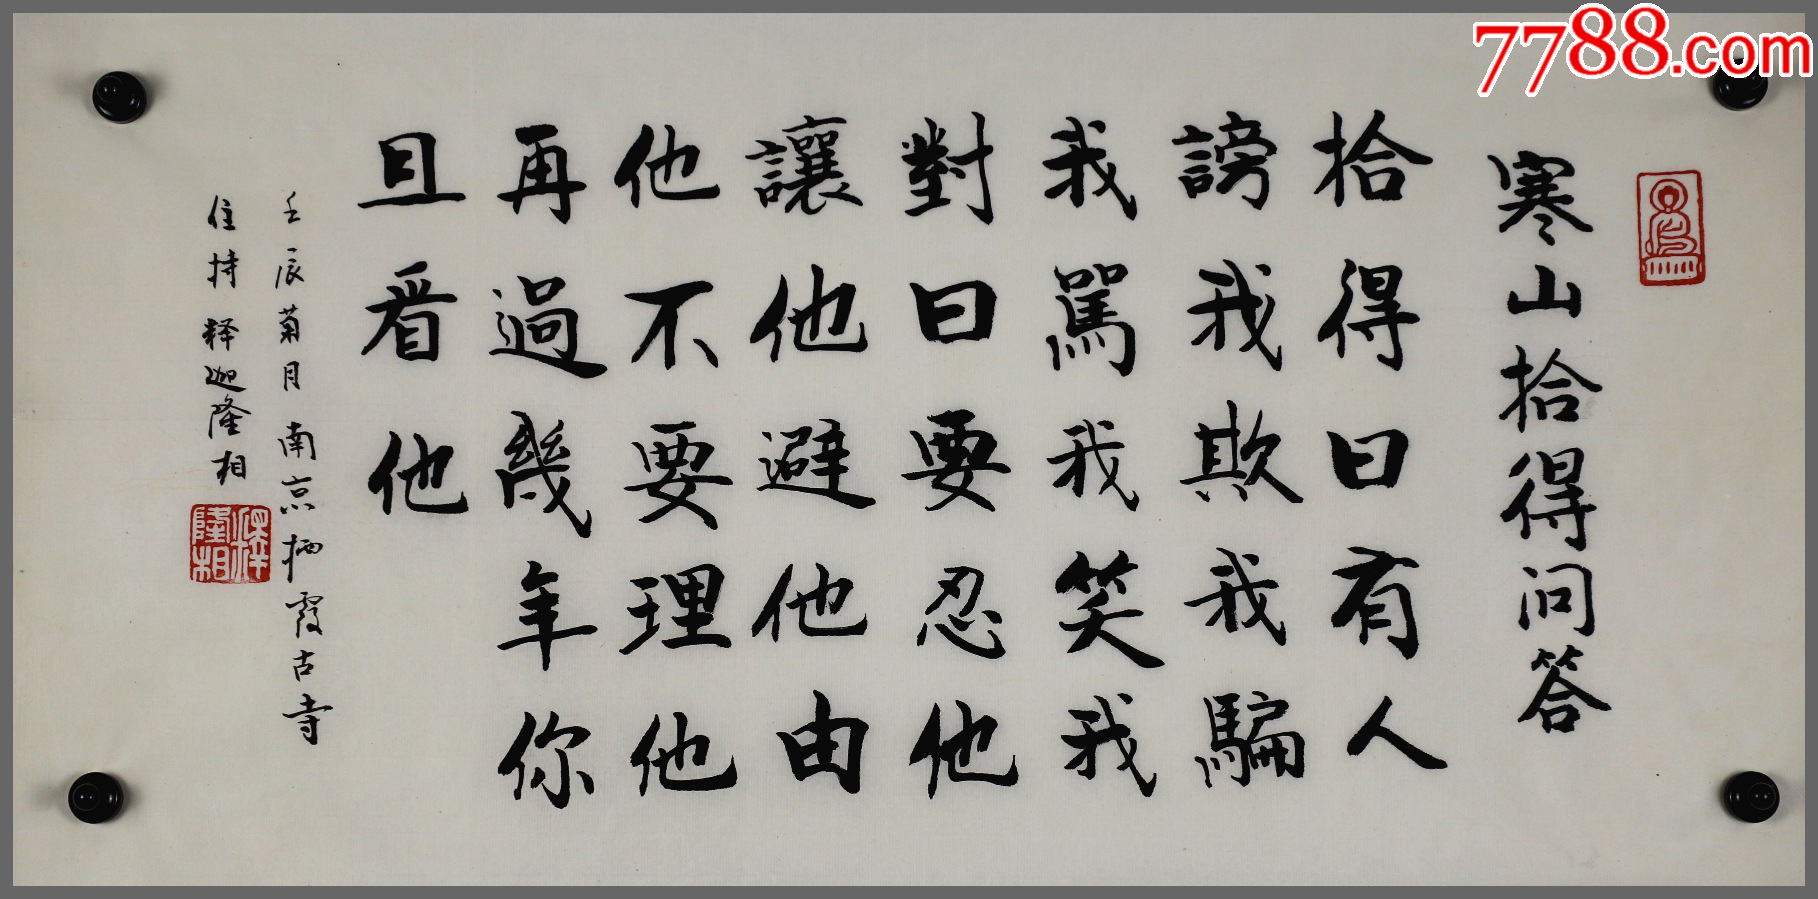 7788.com
寒山拾得问答
拾得曰有人
謗我欺我騙
我駡我笑我
對曰要忍他
讓他避他由
他不要理他
再過幾年你
且看他
壬辰菊月南京栖霞古寺
住持释迦隆相
釋隆相